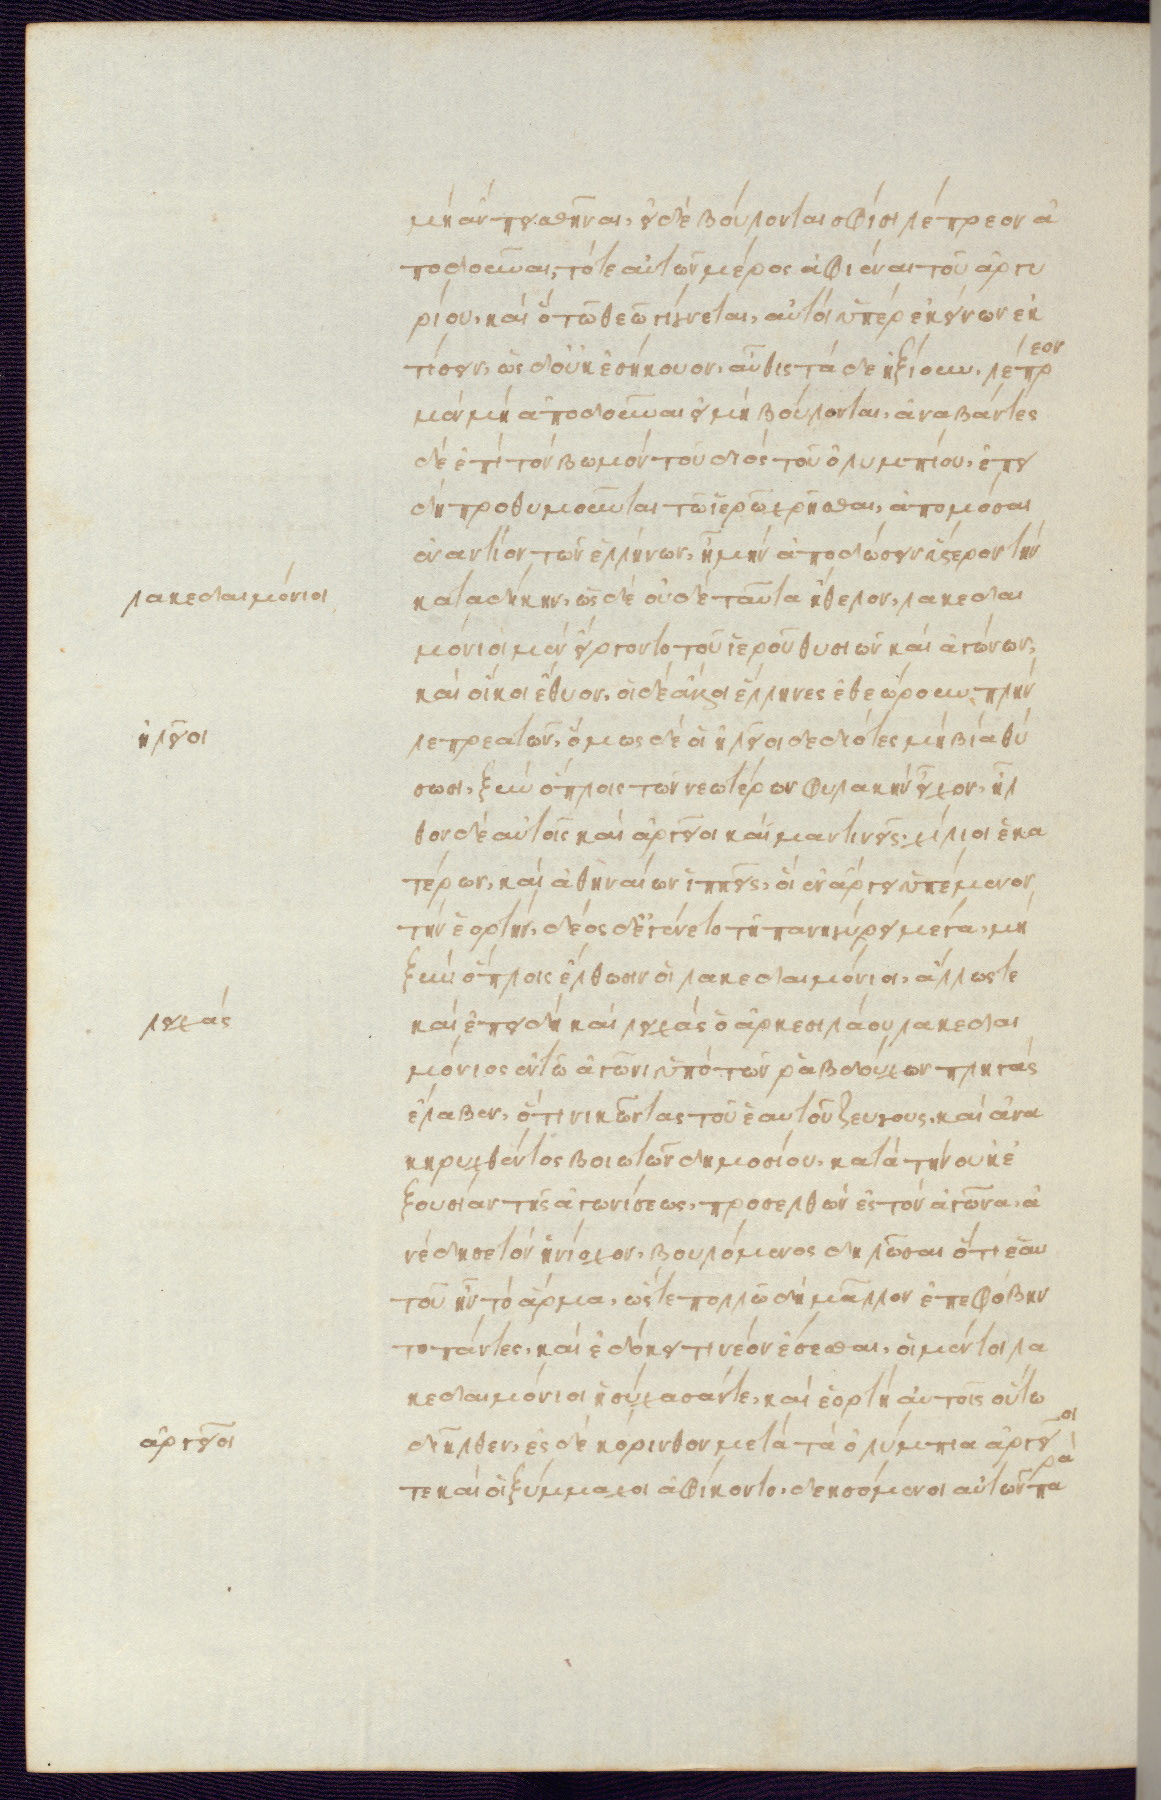 μὴ ἂν πεισθῆναι, εἰ δὲ βούλονται σφίσι λέπρεον ἀ
ποδοῦναι, τό τε αὑτῶν μέρος ἀφιέναι τοῦ ἀργυ
ρίου, καὶ ὃ τῶ θεῶ γίγνεται, αὐτοὶ ὑπὲρ ἐκείνων ἐκ
τίσειν, ὡς δ' οὐκ ἐσήκουον, αὖθις τάδε ἠξίουν, λέπρεον
μὲν μὴ ἀποδοῦναι εἰ μὴ βούλονται, ἀναβάντες
δὲ ἐπὶ τὸν βωμὸν τοῦ διὸς τοῦ ὀλυμπίου, ἐπει
δὴ προθυμοῦνται τῶ ἱερῶ χρῆσθαι, ἀπομόσαι
ἐναντίον τῶν ἑλλήνων, ἦ μὴν ἀποδώσειν ὕστερον τὴν
λακεδαιμόνιοι καταδίκην, ὡς δὲ οὐδὲ ταῦτα ἤθελον, λακεδαι
μόνιοι μὲν εἴργοντο τοῦ ἱεροῦ θυσιῶν καὶ ἀγώνων,
καὶ οἴκοι ἔθυον, οἱ δὲ ἄλλοι ἕλληνες ἐθεώρουν πλὴν
ἠλεῖοι λεπρεατῶν, ὅμως δὲ οἱ ἠλεῖοι δεδιότες μὴ βία θύ
σωσι, ξὺν ὅπλοις τῶν νεωτέρων φυλακὴν εἶχον, ἦλ
θον δὲ αὐτοῖς καὶ ἀργεῖοι καὶ μαντινεῖς, χίλιοι ἑκα
τέρων, καὶ ἀθηναίων ἱππεῖς, οἳ ἐν ἄργει ὑπέμενον
τὴν ἑορτὴν, δέος δ' ἐγένετο τῆ πανηγύρει μέγα, μὴ
ξὺν ὅπλοις ἔλθωσιν οἱ λακεδαιμόνιοι, ἄλλως τε
λειχὰς καὶ ἐπειδὴ καὶ λειχὰς ὁ ἀρκεσιλάου λακεδαι
μόνιος ἐν τῶ ἀγῶνι ὑπὸ τῶν ῥαβδούχων πληγὰς
ἔλαβεν, ὅτι νικῶντος τοῦ ἑαυτοῦ ζεύγους, καὶ ἀνα
κηρυχθέντος βοιωτῶν δημοσίου, κατὰ τὴν οὐκ ἐ
ξουσίαν τῆς ἀγωνίσεως, προσελθὼν ἐς τὸν ἀγῶνα, ἀ
νέδησε τὸν ἡνίοχον, βουλόμενος δηλῶσαι ὅτι ἑαυ
τοῦ ἦν τὸ ἅρμα, ὥστε πολλῶ δὴ μᾶλλον ἐπεφόβην
το πάντες, καὶ ἐδόκει τι νέον ἔσεσθαι, οἱ μέντοι λα
κεδαιμόνιοι ἡσύχασάν τε, καὶ ἑορτὴ αὐτοῖς οὕτω
ἀργεῖοι διῆλθεν, ἐς δὲ κόρινθον μετὰ τὰ ὀλύμπια ἀργεῖοι
τε καὶ οἱ ξύμμαχοι ἀφίκοντο, δεησόμενοι αὐτῶν παρὰ